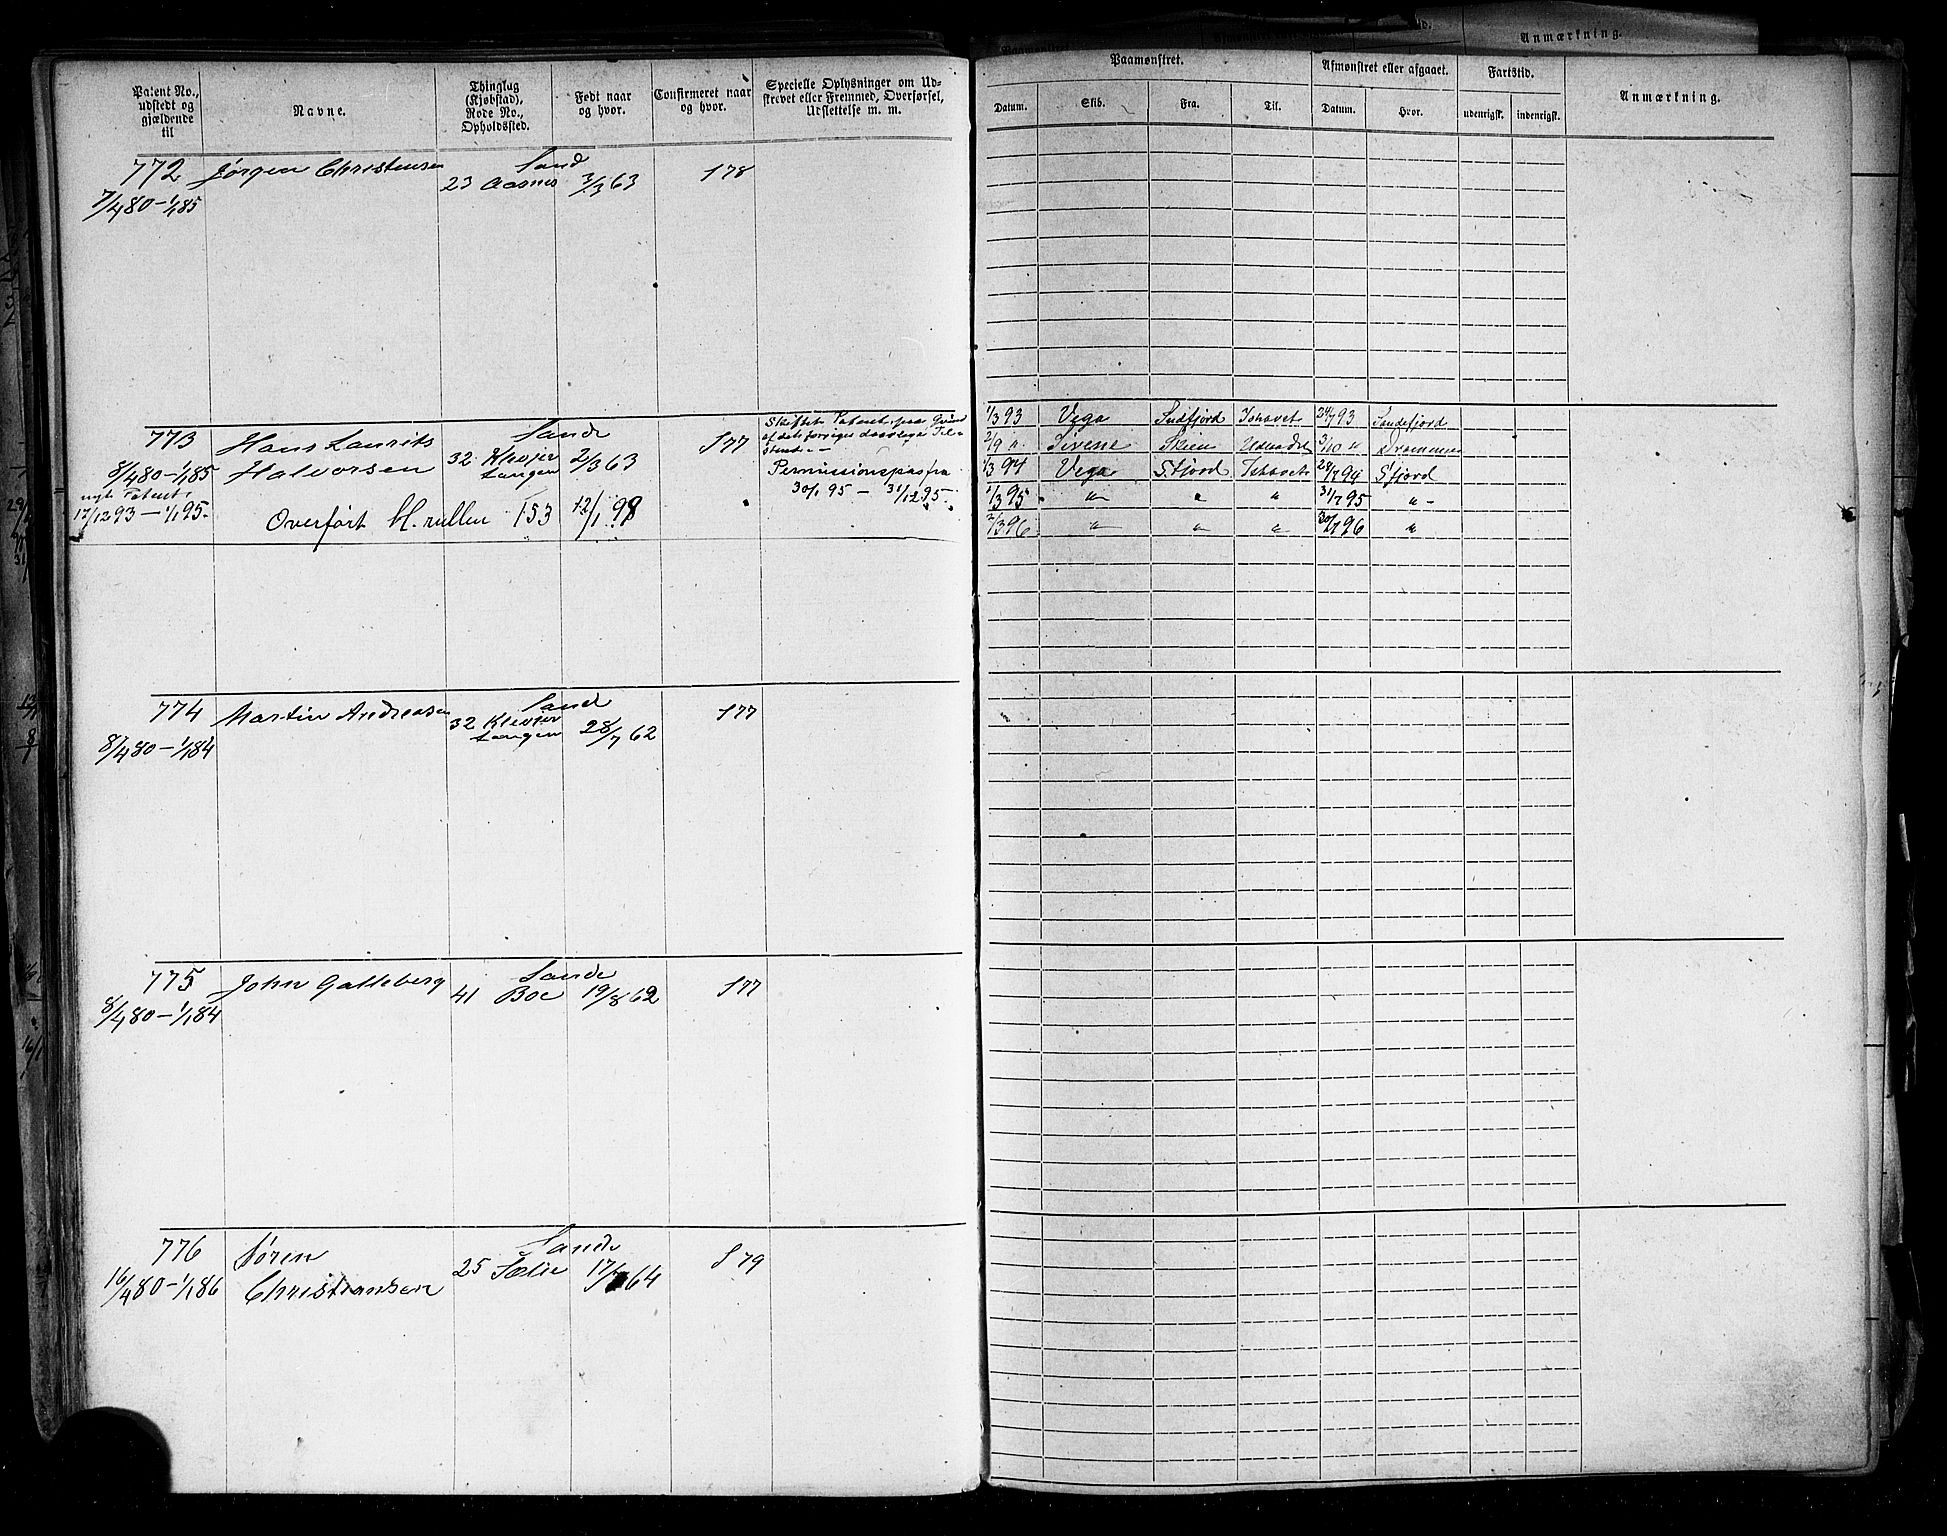 Patent No., udstedt og gjældende til
Navne.
Thinglag (Kjøbstad), Rode No., Opholdssted.
Født naar og hvor.
Confirmeret naar og hvor.
Specielle Oplysninger om Udskrevet eller Fremmed, Overførsel, Udslettelse m. m.
772 Jørgen Christensen Sand
23 Aasnes 3/3 63 178
7/4 80 – 1/1 85
773 Hans Laurits Sande 177
8/4 80 – 1/1 85 Halvorsen 32 Klever tangen 2/3 63
nyt Patent
17/12 93 – 1/1 95.
Overført H. rullen 153 12/1 98
Skiftet Patent paa Grund
af det forriges daarlige Til-
stand. –
Permissionspas fra
30/1 95 – 31/12 95.
774 Martin Andreasen Sand 177
32 Klever tangen 28/7 62
8/4 80 – 1/1 84
775 John Galleberg Sande 177
41 Boe 19/8 62
8/4 80 – 1/1 84
776 Søren Sande 179
25 17/ 64
16/4 80 – 1/1 86 Christiansen
Anmærkning.
Paamønstret.
Afmønstret eller afgaaet.
Fartstid.
Anmærkning.
Datum. Skib. Fra. Til. Datum. Hvor. udenrigsk. indenrigsk.
1/3 93 Vega Sndfjord Ishavet 24/7 93 Sandefjord
2/9 " Sirene Skien Udlandet 3/10 " Drammen
1/3 94 Vega S.fjord Ishavet 28/7 94 S.fjord
1/3 95 " " " 31/7 95 "
2/3 96 " " " 30/7 96 "